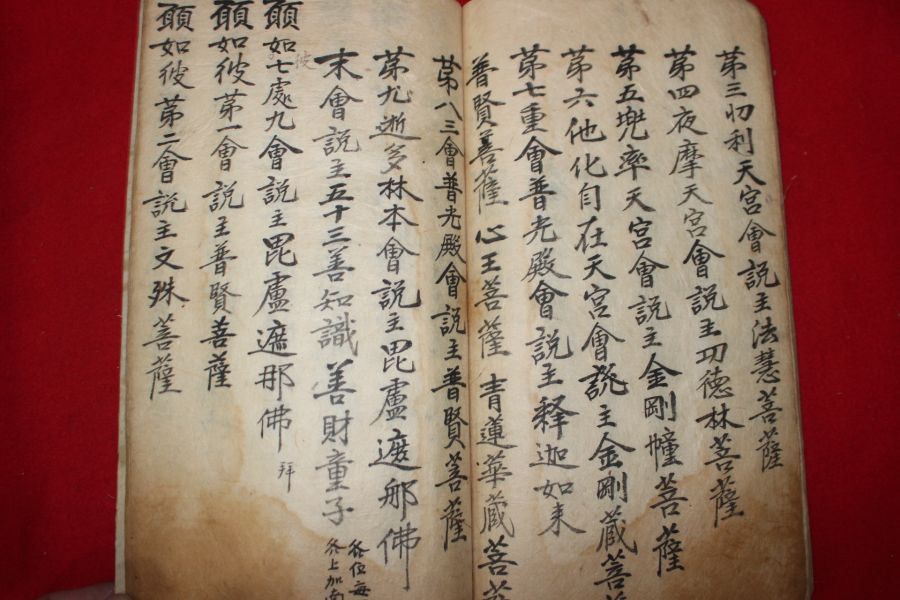 第三忉利天宮會說主法慧菩薩
第四夜摩天宮會說主功德林菩薩
第五兜率天宮會說主金剛幢菩薩
第六他化自在天宮會說主金剛藏菩
第七重會普光殿會說主釋迦如来
普賢菩薩 心王菩薩 青蓮華藏菩
第八三會普光殿會說主普賢菩薩
第九逝多林本會說主毘盧遮那佛
末會說主五十三善知識善財童子
願如彼七處九會說主毘盧遮那佛 拜
願如彼第一會說主普賢菩薩
願如彼第二會說主文殊菩薩